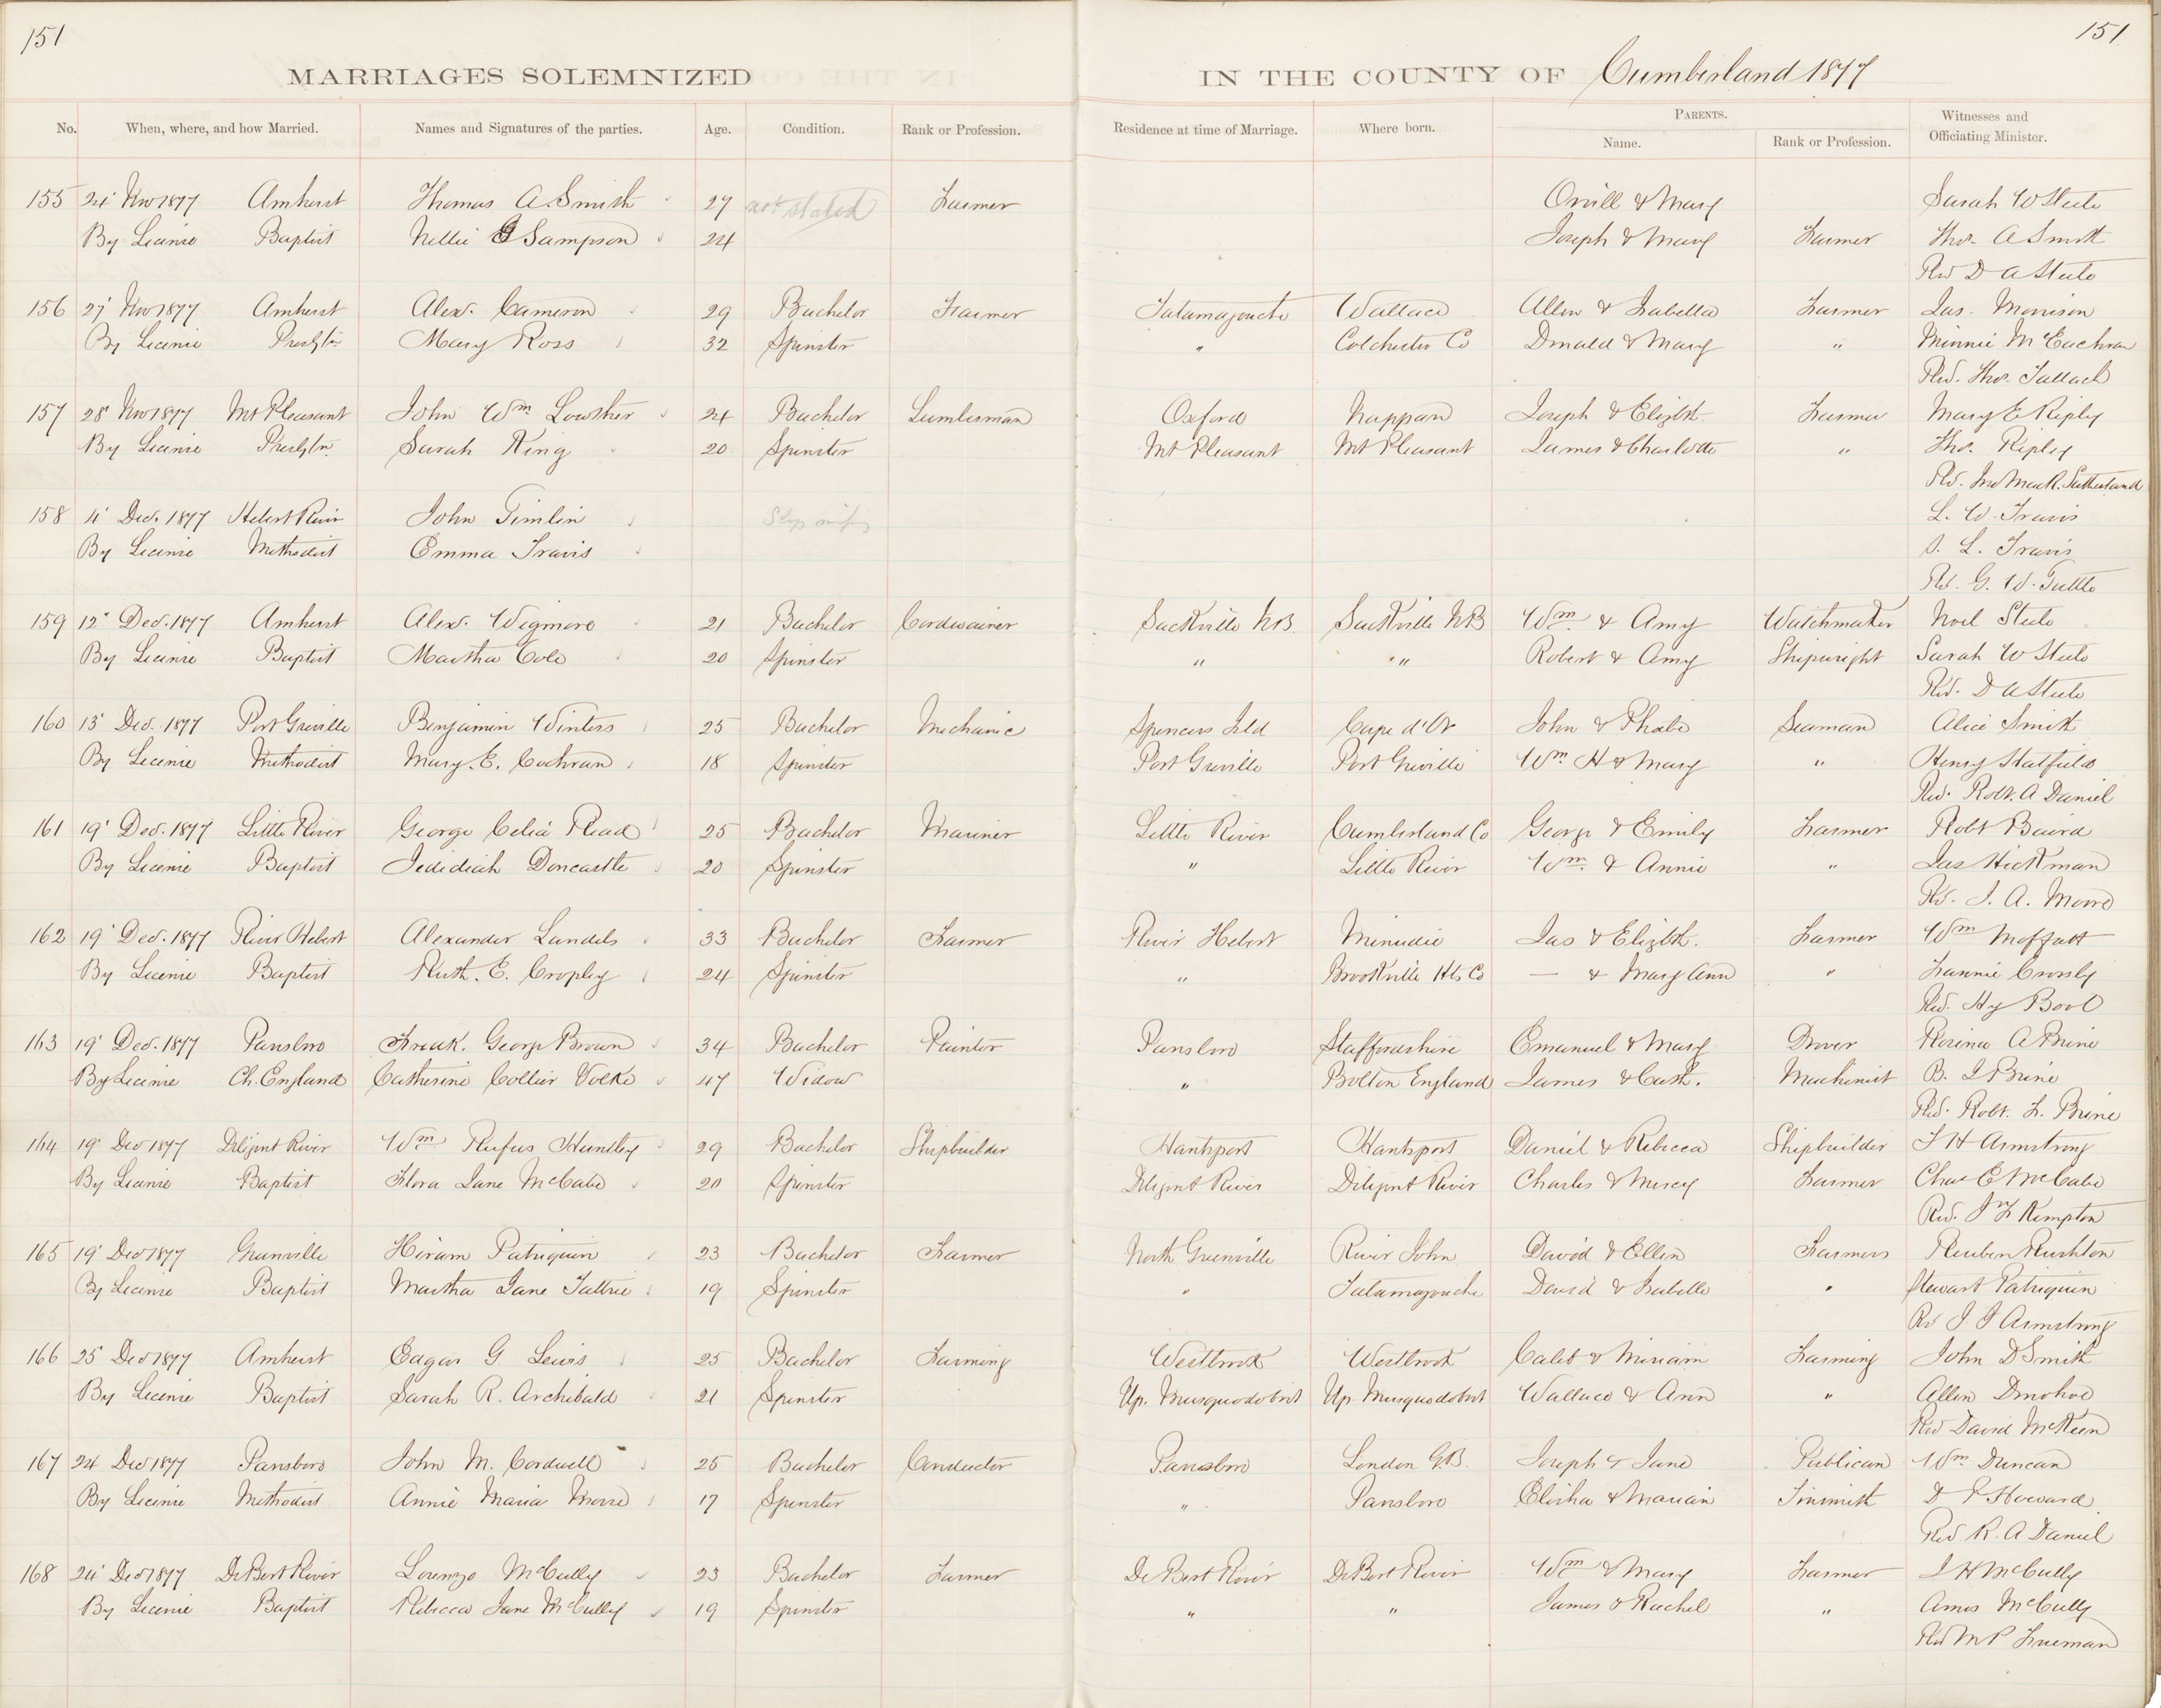 151
151
MARRIAGES SOLEMNIZED IN THE COUNTY OF Cumberland 1877
No. When, where, and how Married. Names and Signatures of the parties. Age. Condition. Rank or Profession. Residence at time of Marriage. Where born. PARENTS. Name. Rank or Profession. Witnesses and Officiating Minister.
155 24 Nov 1877 Amherst Thomas A. Smith 27 not stated Farmer Orvill & Mary Sarah W Steele
By Licence Baptist Nellie G Sampson 24 Joseph & Mary Farmer Thos. A Smith
Rev D A Steele
156 27 Nov 1877 Amherst Alexr. Cameron 29 Bachelor Farmer Tatamagouche Wallace Allen & Isabella Farmer Jas. Morrison
By Licence Presbtn Mary Ross 32 Spinster " Colchester Co Donald & Mary " Minnie McEachran
Rev. Thos. Tallach
157 28 Nov 1877 Mt Pleasant John Wm Lowther 24 Bachelor Lumberman Oxford Nappan Joseph & Elizbth. Farmer Mary E Ripley
By Licence Presbtn Sarah King 20 Spinster Mt Pleasant Mt Pleasant James & Charlotte " Thos. Ripley
Rev. Jno MacR. Sutherland
158 11 Dec. 1877 Hebert River John Timlin Slip L. W. Travis
By Licence Methodist Emma Travis S. L. Travis
Rev. G. W. Tuttle
159 12 Dec. 1877 Amherst Alexr. Wigmore 21 Bachelor Cordwainer Sackville NB. Sackville NB Wm & Amy Watchmaker Noel Steele
By Licence Baptist Martha Cole 20 Spinster " " Robert & Amy Shipwright Sarah W Steele
Rev. D A Steele
160 13 Dec. 1877 Port Greville Benjamin Winters 25 Bachelor Mechanic Spencers Isld Cape d'Or John & Phoebe Seaman Alice Smith
By Licence Methodist Mary. E. Cochran 18 Spinster Port Greville Port Greville Wm H & Mary " Henry Hatfield
Rev. Robt. A Daniel
161 19 Dec. 1877 Little River George Celia Read 25 Bachelor Mariner Little River Cumberland Co George & Emily Farmer Robt Baird
By Licence Baptist Jedidiah Doncastle 20 Spinster " Little River Wm & Annie " Jas Hickman
Rev. J. A. Moore
162 19 Dec. 1877 River Hebert Alexander Lundels 33 Bachelor Farmer River Hebert Minudie Jas & Elizbth. Farmer Wm Moffatt
By Licence Baptist Ruth. E. Cropley 24 Spinster " Brookville Hts Co — & Mary Ann " Fannie Crosby
Rev. Hy Bool
163 19 Dec. 1877 Parrsboro Freuk. George Brown 34 Bachelor Painter Parrsboro Staffordshire Emanuel & Mary Drover Florence A Brine
By Licence Ch. England Catherine Collier Volke 47 Widow " Bolton England James & Cath. Machinist B. I Brine
Rev. Robt. F. Brine
164 19 Dec 1877 Diligent River Wm Rufus Huntley 29 Bachelor Shipbuilder Hantsport Hantsport Daniel & Rebecca Shipbuilder T H Armstrong
By Licence Baptist Flora Jane McCabe 20 Spinster Diligent River Diligent River Charles & Mercy Farmer Chas E McCabe
Rev. J F Kempton
165 19 Dec 1877 Greenville Hiram Patriquin 23 Bachelor Farmer North Greenville River John David & Ellen Farmers Reuben Rushton
By Licence Baptist Martha Jane Tattrie 19 Spinster " Tatamagouche David & Isabelle " Stewart Patriquin
Rev J I Armstrong
166 25 Dec 1877 Amherst Edgar G. Lewis 25 Bachelor Farming Westbrook Westbrook Caleb & Miriam Farming John D Smith
By Licence Baptist Sarah R. Archibald 21 Spinster Up. Musquodobit Up. Musquodobit Wallace & Ann " Allen Donohoe
Rev David McKeen
167 24 Dec 1877 Parrsboro John M. Cordwell 25 Bachelor Conductor Parrsboro London G.B. Joseph & Jane Publican Wm Duncan
By Licence Methodist Annie Maria Moore 17 Spinster " Parrsboro Elisha & Mariain Tinsmith D P Howard
Rev R. A Daniel
168 24 Dec 1877 De Bert River Lorenzo McCully 23 Bachelor Farmer De Bert River De Bert River Wm & Mary Farmer I H McCully
By Licence Baptist Rebecca Jane McCully 19 Spinster " " James & Rachel " Amos McCully
Rev M P Freeman